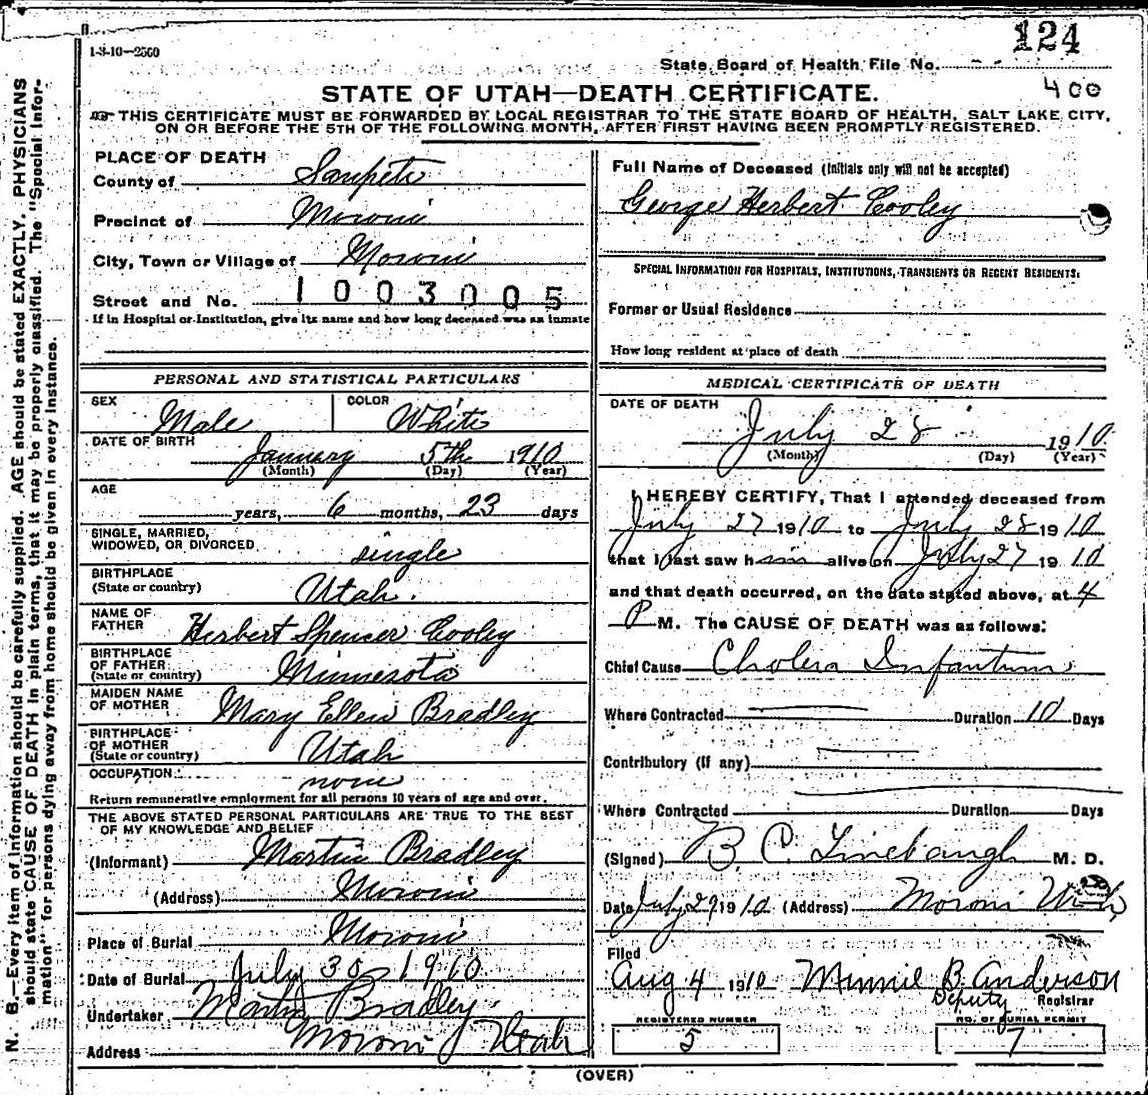 1-8-10—2500
124
State Board of Health File No.
400
STATE OF UTAH—DEATH CERTIFICATE.
THIS CERTIFICATE MUST BE FORWARDED BY LOCAL REGISTRAR TO THE STATE BOARD OF HEALTH, SALT LAKE CITY,
ON OR BEFORE THE 5TH OF THE FOLLOWING MONTH, AFTER FIRST HAVING BEEN PROMPTLY REGISTERED.
N. B.—Every item of information should be carefully supplied. AGE should be stated EXACTLY. PHYSICIANS
should state CAUSE OF DEATH in plain terms, that it may be properly classified. The "Special Infor-
mation" for persons dying away from home should be given in every instance.
PLACE OF DEATH
County of Sanpete
Precinct of Moroni
City, Town or Village of Moroni
Street and No. 1003005
If in Hospital or Institution, give its name and how long deceased was an inmate
PERSONAL AND STATISTICAL PARTICULARS
SEX Male COLOR White
DATE OF BIRTH January 5th 1910
(Month) (Day) (Year)
AGE
years, 6 months, 23 days
SINGLE, MARRIED,
WIDOWED, OR DIVORCED single
BIRTHPLACE
(State or country) Utah.
NAME OF
FATHER Herbert Spencer Cooley
BIRTHPLACE
OF FATHER
(State or country) Minnesota
MAIDEN NAME
OF MOTHER Mary Ellen Bradley
BIRTHPLACE
OF MOTHER
(State or country) Utah
OCCUPATION none
Return remunerative employment for all persons 10 years of age and over.
THE ABOVE STATED PERSONAL PARTICULARS ARE TRUE TO THE BEST
OF MY KNOWLEDGE AND BELIEF
(Informant) Martin Bradley
(Address) Moroni
Place of Burial Moroni
Date of Burial July 30 1910
Undertaker Martin Bradley
Address Moroni Utah
Full Name of Deceased (Initials only will not be accepted)
George Herbert Cooley
SPECIAL INFORMATION FOR HOSPITALS, INSTITUTIONS, TRANSIENTS OR RECENT RESIDENTS:
Former or Usual Residence
How long resident at place of death
MEDICAL CERTIFICATE OF DEATH
DATE OF DEATH
July 28 1910
(Month) (Day) (Year)
I HEREBY CERTIFY, That I attended deceased from
July 27 1910 to July 28 1910
that I last saw him alive on July 27 1910
and that death occurred, on the date stated above, at 4
P M. The CAUSE OF DEATH was as follows:
Chief Cause Cholera Infantum
Where Contracted Duration 10 Days
Contributory (If any)
Where Contracted Duration Days
(Signed) B. C. Linebaugh M. D.
Date July 29 1910 (Address) Moroni Utah
Filed
Aug 4 1910 Minnie B. Anderson
Deputy Registrar
REGISTERED NUMBER NO. OF BURIAL PERMIT
5 7
(OVER)